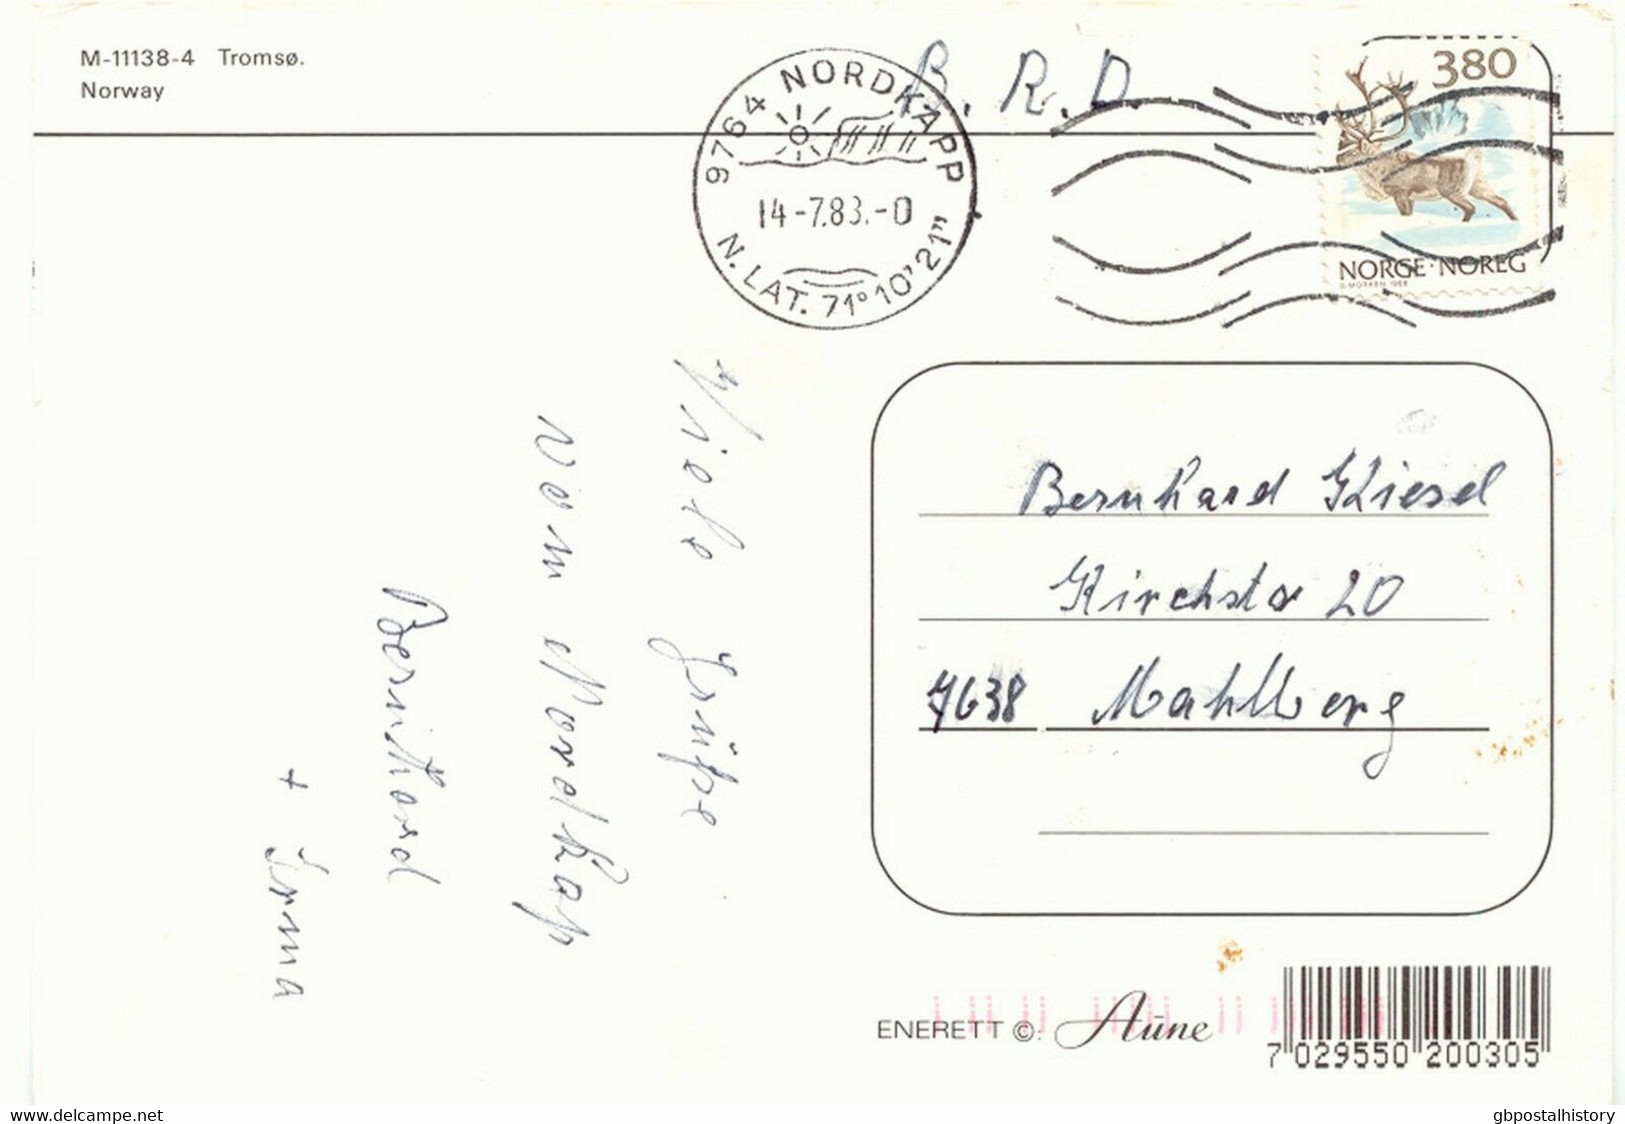 M-11138-4 Tromsø.
Norway
B. R. D.
9764 NORDKAPP
14-7.83.-0
N. LAT. 71° 10' 21"
380
NORGE · NOREG
Viele Grüße
vom Nordkap
Bernhard
+ Irma
Bernhard Kiesel
Kirchstr 20
7638 Mahlberg
ENERETT ©: Aune
7 029550 200305
www.delcampe.net
gbpostalhistory